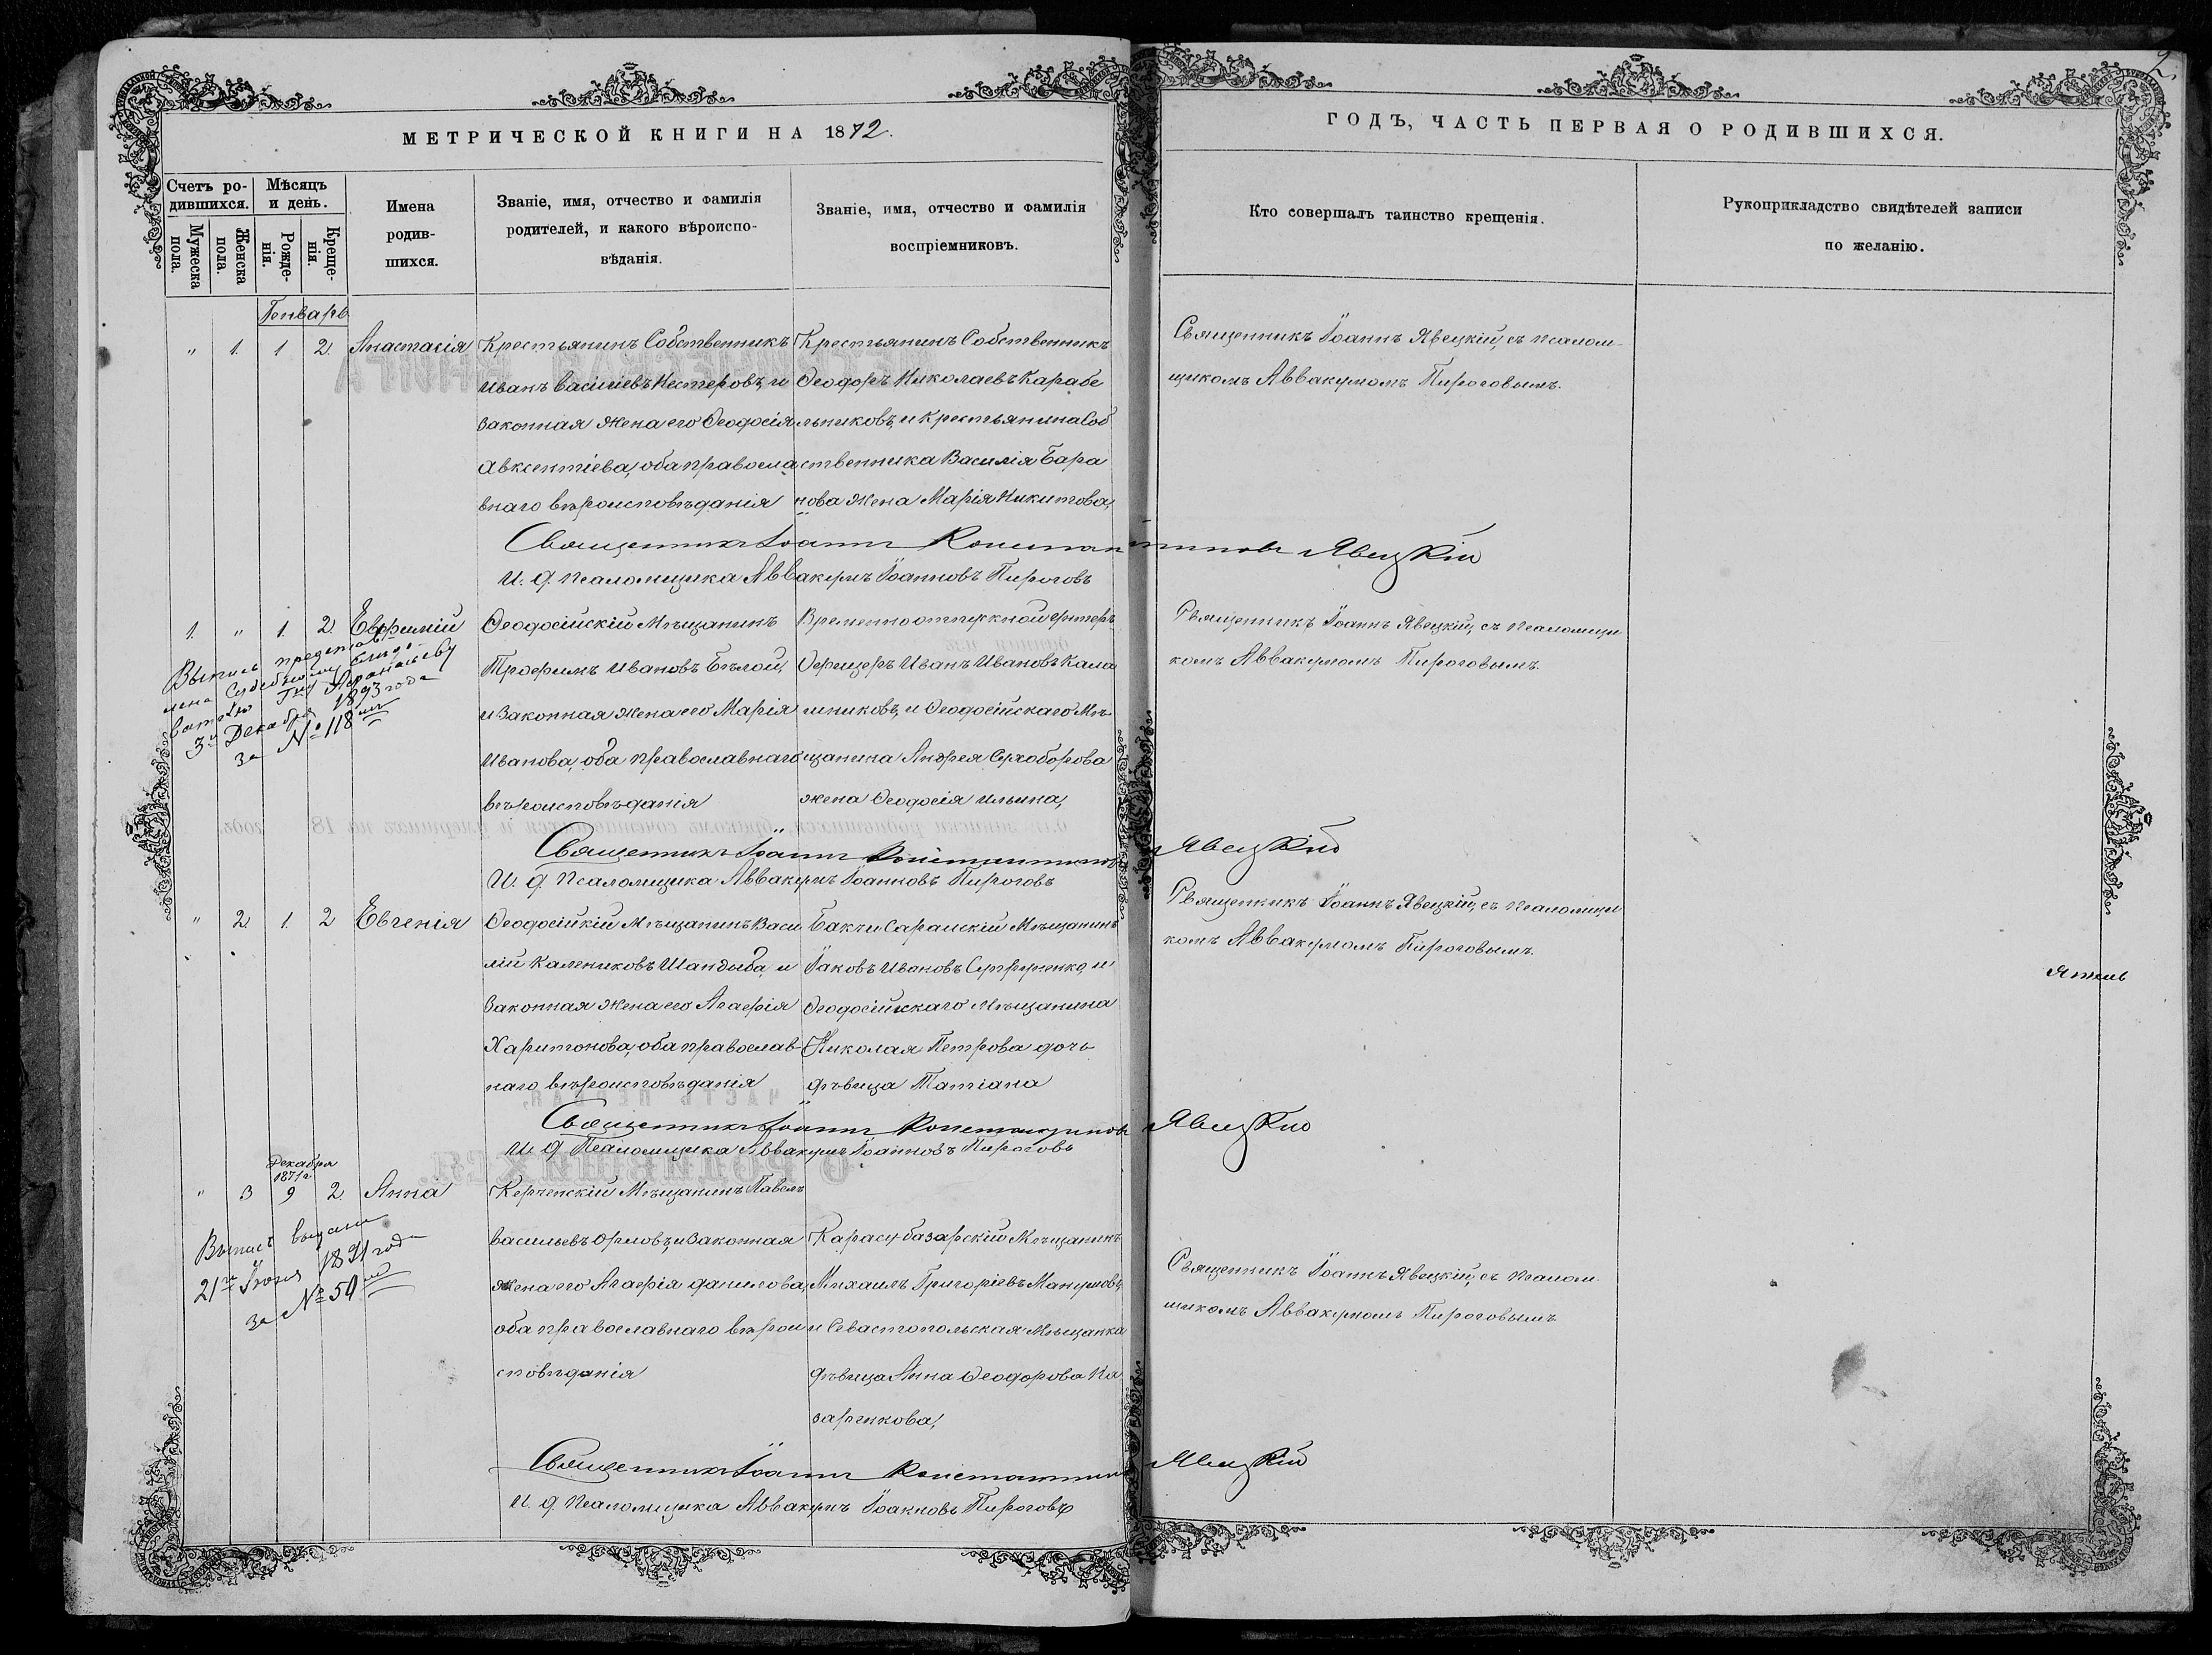 2.
МЕТРИЧЕСКОЙ КНИГИ НА 1872.
ГОДЪ, ЧАСТЬ ПЕРВАЯ О РОДИВШИХСЯ.
Счетъ ро-
дившихся.
Мѣсяцъ
и день.
Мужеска
пола.
Женска
пола.
Рожде-
нія.
Креще-
нія.
Имена
родив-
шихся.
Званіе, имя, отчество и фамилія
родителей, и какого вѣроиспо-
вѣданія.
Званіе, имя, отчество и фамилія
воспріемниковъ.
Кто совершалъ таинство крещенія.
Рукоприкладство свидѣтелей записи
по желанію.
Генварь
" 1. 1 2. Анастасія
Крестьянинъ Собственникъ
Иванъ Василіевъ Нестеровъ, и
законная жена его Ѳеодосія
Авксентіева, оба правосла
внаго вѣроисповѣданія
Крестьянинъ Собственникъ
Ѳеодоръ Николаевъ Карабе
льниковъ, и крестьянина Соб
ственника Василія Бара
нова жена Марія Никитова,
Священникъ Іоаннъ Явецкій, съ псалом-
щикомъ Аввакумомъ Пироговымъ.
Священникъ Іоаннъ Константиновъ Явецкій
И. д. псаломщика Аввакумъ Іоанновъ Пироговъ
1. " 1. 2. Евфимій
Выпись представ
лена Судебному Слѣдо-
вателю
3го Декабря 1893 года
за № 118мъ
Ѳеодосійскій Мѣщанинъ
Трофимъ Ивановъ Бѣлой,
и законная жена его Марія
Иванова, оба православнаго
вѣроисповѣданія
Временно отпускной унтеръ
Офицеръ Иванъ Ивановъ Кала
шниковъ, и Ѳеодосійскаго Мѣ
щанина Андрея Сухоборова
жена Ѳеодосія Ильина,
Священникъ Іоаннъ Явецкій, съ псаломщи
комъ Аввакумомъ Пироговымъ.
Священникъ Іоаннъ Константиновъ Явецкій
И. д. псаломщика Аввакумъ Іоанновъ Пироговъ
" 2. 1. 2 Евгенія
Ѳеодосійкій Мѣщанинъ Васи
лій Калениковъ Шандыба, и
законная жена его Агафія
Харитонова, оба православ-
наго вѣроисповѣданія
Бахчи Сарайскій Мѣщанинъ
Іаковъ Ивановъ и
Ѳеодосійскаго Мѣщанина
Николая Петрова дочь
дѣвица Татіана
Священникъ Іоаннъ Явецкій, съ псаломщи
комъ Аввакумомъ Пироговымъ.
Священникъ Іоаннъ Константиновъ Явецкій
И. д. Псаломщика Аввакумъ Іоанновъ Пироговъ
Декабря
1871 г.
" 3 9 2. Анна
Выпись выдана
21го Іюня 1891 года
за № 54мъ
Керченскій Мѣщанинъ Павелъ
Васильевъ Орловъ, и законная
жена его Агафія Данилова,
оба православнаго вѣрои
сповѣданія
Карасубазарскій Мѣщанинъ
Михаилъ Григоріевъ Мануйловъ,
и Севастопольская Мѣщанка
дѣвица Анна Ѳеодорова
Священникъ Іоаннъ Явецкій, съ псалом
щикомъ Аввакумомъ Пироговымъ
Священникъ Іоаннъ Константиновъ Явецкій
И. д. псаломщика Аввакумъ Іоанновъ Пироговъ